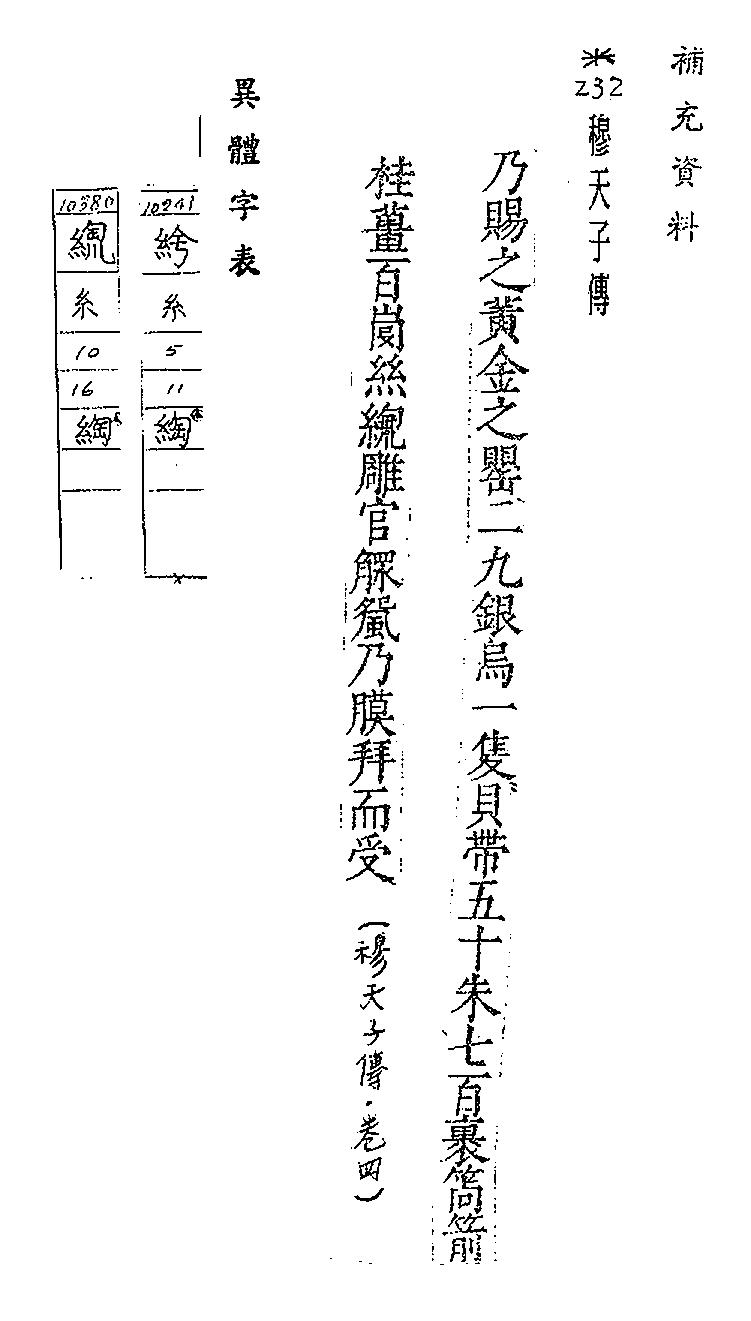 補充資料
*
232
穆天子傳
乃賜之黃金之罌二九銀烏一隻貝帶五十朱七百裹筩箭
桂薑百㟭絲䌰雕官𧤗乃膜拜而受
(穆天子傳・卷四)
異體字表
10241
糸
5
11
綯
10380
糸
10
16
綯